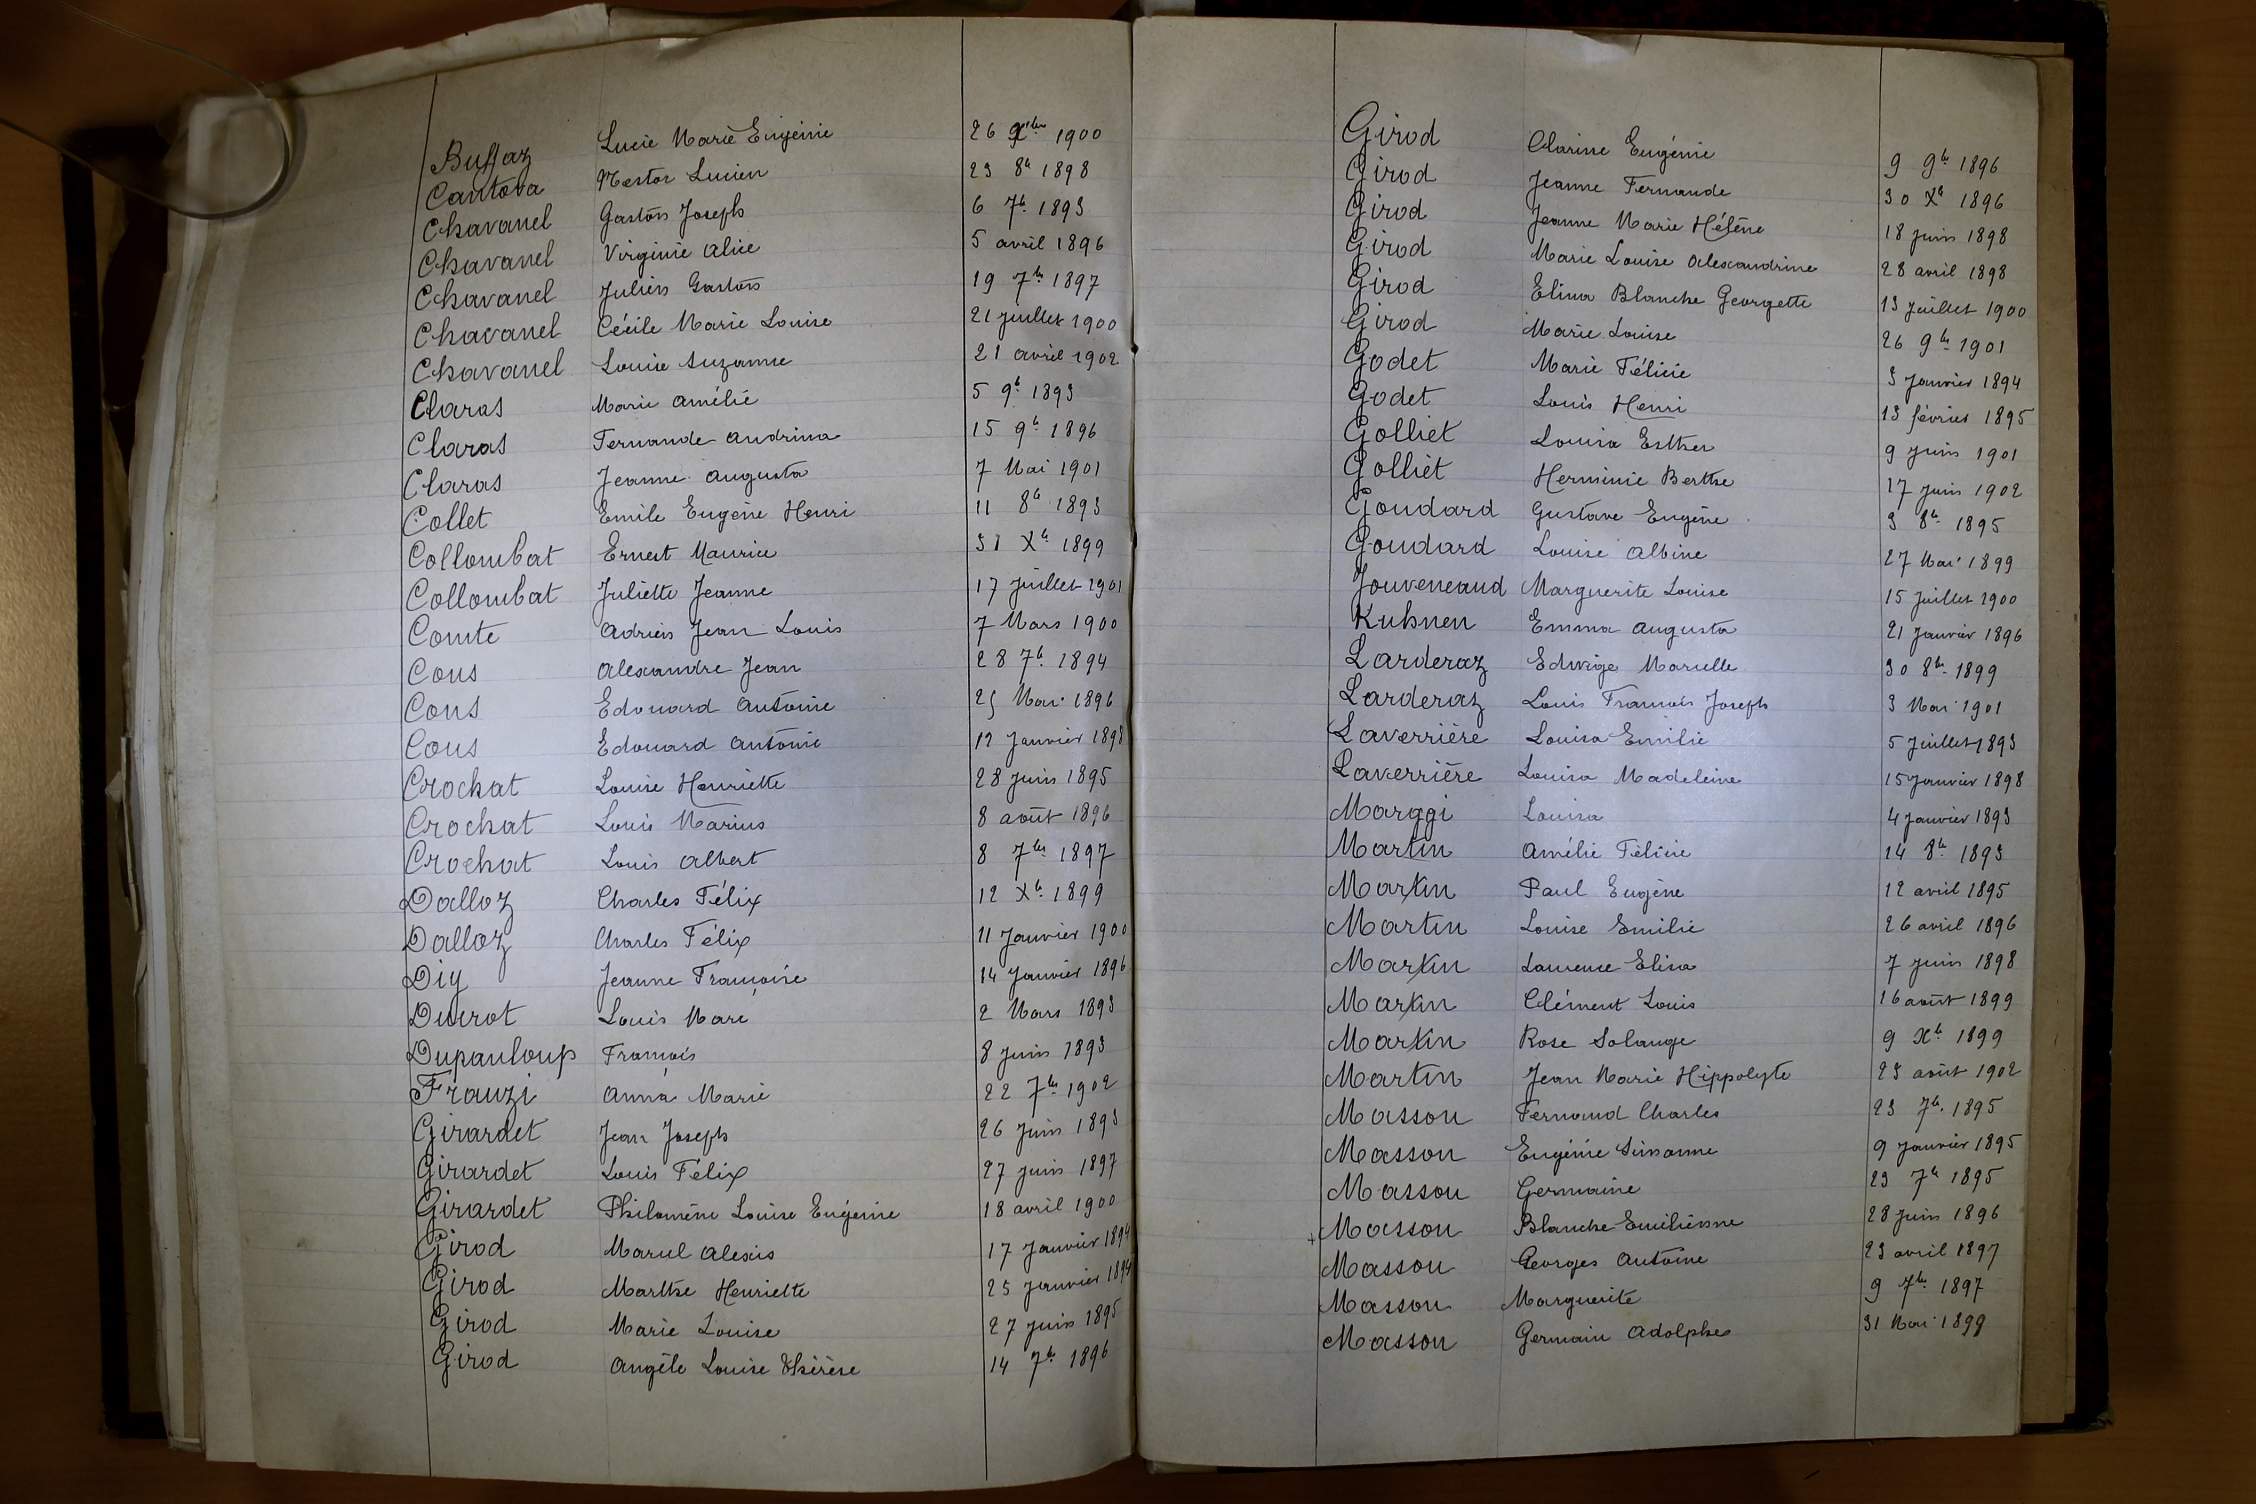 Buffaz Lucie Marie Eugénie 26 Xbre 1900
Cantova Nestor Lucien 23 8b 1898
Chavanel Gaston Joseph 6 7b 1893
Chavanel Virginie Alice 5 avril 1896
Chavanel Julien Gaston 19 7b 1897
Chavanel Cécile Marie Louise 21 juillet 1900
Chavanel Louise Suzanne 21 avril 1902
Claras Marie Amélie 5 9b 1893
Claras Fernande Andrina 15 9b 1896
Claras Jeanne Augusta 7 Mai 1901
Collet Emile Eugène Henri 11 8b 1893
Collombat Ernest Maurice 31 Xb 1899
Collombat Juliette Jeanne 17 Juillet 1901
Comte Adrien Jean Louis 7 Mars 1900
Cons Alexandre Jean 28 7b 1894
Cons Edouard Antoine 25 Mai 1896
Cons Edouard Antonie 12 Janvier 1898
Crochat Louise Henriette 28 juin 1895
Crochat Louis Marius 8 août 1896
Crochat Louis Albert 8 7b 1897
Dalloz Charles Félix 12 Xb 1899
Dalloz Charles Félix 11 Janvier 1900
Diy Jeanne Françoise 14 Janvier 1896
Ducrot Louis Marc 2 Mars 1893
Dupanloup François 8 juin 1893
Franzi Anna Marie 22 7b 1902
Girardet Jean Joseph 26 juin 1893
Girardet Louis Félix 27 juin 1897
Girardet Philomène Louise Eugénie 18 avril 1900
Girod Marcel Alexis 17 Janvier 1894
Girod Marthe Henriette 25 Janvier 1894
Girod Marie Louise 27 juin 1895
Girod Angèle Louise Thérèse 14 7b 1896
Girod Clarisse Eugénie 9 9b 1896
Girod Jeanne Fernande 30 Xb 1896
Girod Jeanne Marie Hélène 18 juin 1898
Girod Marie Louise Alexandrine 28 avril 1898
Girod Elina Blanche Georgette 13 juillet 1900
Girod Marie Louise 26 9b 1901
Godet Marie Félicie 3 Janvier 1894
Godet Louis Henri 13 février 1895
Golliet Louisa Esther 9 juin 1901
Golliet Herminie Berthe 17 juin 1902
Goudard Gustave Eugène 3 8b 1895
Goudard Louise Albine 27 Mai 1899
Jouveneaud Marguerite Louise 15 Juillet 1900
Kuhnen Emma Augusta 21 Janvier 1896
Larderaz Edwige Marcelle 30 8b 1899
Larderaz Louis François Joseph 3 Mai 1901
Laverrière Louisa Emilie 5 Juillet 1893
Laverrière Louisa Madeleine 15 Janvier 1898
Marggi Louisa 4 Janvier 1893
Martin Amélie Félicie 14 8b 1893
Martin Paul Eugène 12 avril 1895
Martin Louise Emilie 26 avril 1896
Martin Laurence Elisa 7 juin 1898
Martin Clément Louis 16 août 1899
Martin Rose Solange 9 Xb 1899
Martin Jean Marie Hippolyte 23 août 1902
Masson Fernand Charles 23 7b 1895
Masson Eugénie Susanne 9 Janvier 1895
Masson Germaine 23 7b 1895
+ Masson Blanche Emilienne 28 juin 1896
Masson Georges Antoine 23 avril 1897
Masson Marguerite 9 7b 1897
Masson Germain Adolphe 31 Mai 1899